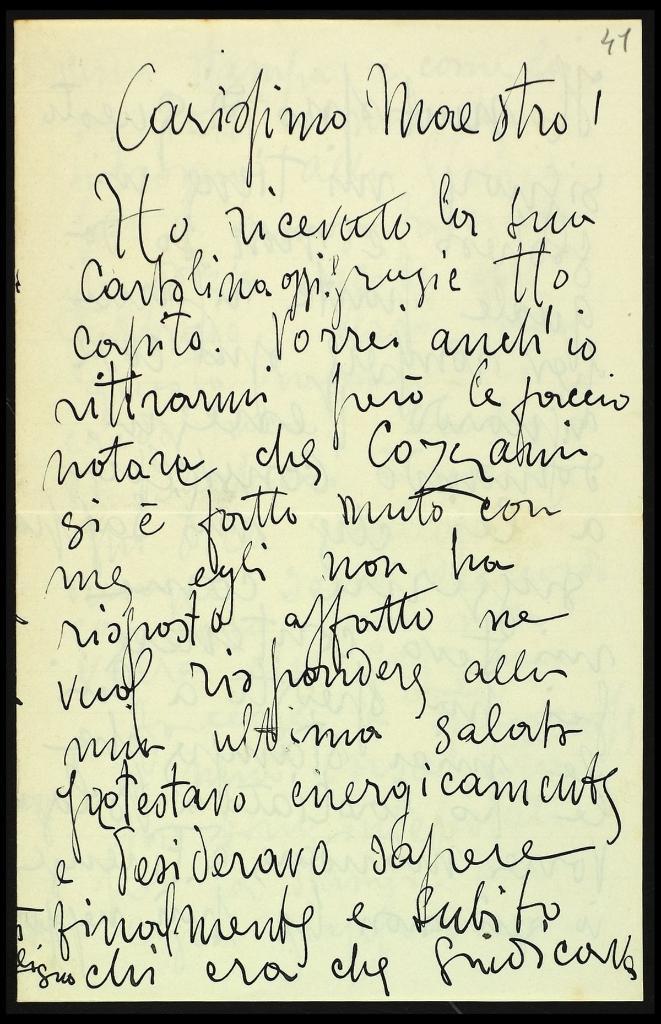 41
Carissimo Maestro!
Ho ricevuto la sua
Cartolina oggi, grazie Ho
capito. Vorrei anch'io
rittrarmi però le faccio
notare che Cozzani
si è fatto muto con
me egli non ha
risposto affatto ne
vuol rispondere alla
mia ultima salata
protestavo energicamente
e desideravo sapere
finalmente e subito
chi era che giudicava